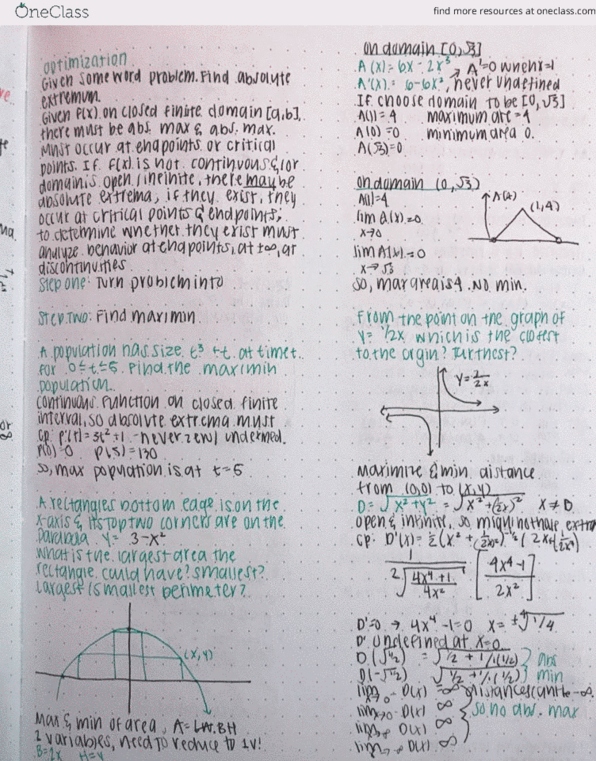 OneClass
find more resources at oneclass.com
optimization
Given some word problem. Find absolute
extremum.
Given f(x) on closed finite domain [a,b],
there must be abs. max & abs. max.
Must occur at end points or critical
points. If f(x) is not continuous &/or
domain is open/infinite, there may be
absolute extrema, if they exist, they
occur at critical points & endpoints,
to determine whether they exist must
analyze behavior at endpoints, at ±∞, or
discontinuities
Step one: Turn problem into
Step Two: Find max/min
A population has size t³ + t at time t.
for 0≤t≤5. Find the max/min
population.
Continuous function on closed finite
interval, so absolute extrema must
cp: P'(t) = 3t²+1 - never zero/undefined.
P(0)=0 P(5)=130
so, max population is at t=5
A rectangles bottom edge is on the
x-axis & its top two corners are on the
parabola y= 3-x²
What is the largest area the
rectangle could have? smallest?
Largest/smallest perimeter?
(x,y)
Max & min of area, A= LW.BH
2 variables, need to reduce to 1v!
B=2x H=y
on domain [0,√3]
A(x)= 6x - 2x³ → A'=0 when x=1
A'(x)= 6-6x², never undefined
If choose domain to be [0,√3]
A(1)=4 maximum are =4
A(0)=0 minimum area 0.
A(√3)=0
on domain (0,√3)
A(1)=4
lim A(x)=0
x→0
lim A(x)=0
x→√3
A(x)
(1,4)
so, max area is 4. No min.
From the point on the graph of
y= 1/2x which is the closest
to the orgin? Furthest?
y= 1/2x
Maximize & min distance
from (0,0) to (x,y)
D= √x²+y² = √x²+(1/2x)² x≠0
open & infinite, so might not have extre
cp: D'(x)= ½(x²+(1/2x)²)
1/2√(4x⁴+1/4x²) [4x⁴-1/2x²]
D'=0 → 4x⁴-1=0 x= ±⁴√1/4
D' undefined at x=0
abs
min
so no abs. max